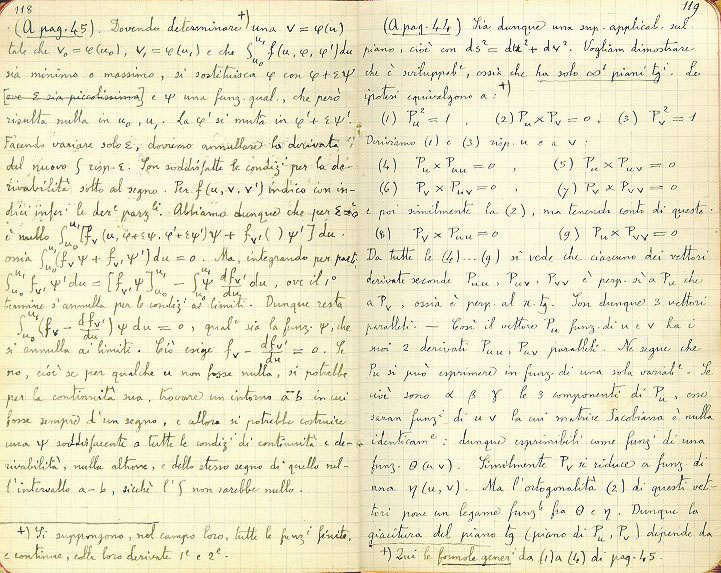 118
(A pag. 45). Dovendo determinare +) una v = φ(u)
tale che v₀ = φ(u₀), v₁ = φ(u₁) e che ∫_{u₀}^{u₁} f(u, φ, φ') du
sia minimo o massimo, si sostituisca φ con φ + εψ
[ove ε sia piccolissima] e ψ una funz. qual., che però
risulta nulla in u₀, u₁. La φ' si muta in φ' + εψ'.
Facendo variare solo ε, dovremo annullare la derivata
del nuovo ∫ risp. ε. Son soddisfatte le condizⁱ per la de-
rivabilità sotto al segno. Per f(u, v, v') indico con in-
dici inferⁱ le derᵉ parzˡⁱ. Abbiamo dunque che per ε=0
è nullo ∫_{u₀}^{u₁} [f_v(u, φ+εψ, φ'+εψ')ψ + f_{v'}( ) ψ'] du.
ossia ∫_{u₀}^{u₁} (f_v ψ + f_{v'} ψ') du = 0. Ma, integrando per parti,
∫_{u₀}^{u₁} f_{v'} ψ' du = [f_{v'} ψ]_{u₀}^{u₁} - ∫_{u₀}^{u₁} ψ df_{v'}/du du, ove il 1°
termine s'annulla per le condizⁱ ai limiti. Dunque resta
∫_{u₀}^{u₁} (f_v - df_{v'}/du) ψ du = 0, qualᵉ sia la funz. ψ, che
si annulla ai limiti. Ciò esige f_v - df_{v'}/du = 0. Se
no, cioè se per qualche u non fosse nulla, si potrebbe
per la continuità sua, trovare un intorno a-b in cui
fosse sempre d'un segno, e allora si potrebbe costruire
una ψ soddisfacente a tutte le condizⁱ di continuità e de-
rivabilità, nulla altrove, e dello stesso segno di quello nel-
l'intervallo a-b, sicchè l'∫ non sarebbe nullo.
+) Si suppongono, nel campo loro, tutte le funzⁱ finite,
e continue, colle loro derivate 1ᵉ e 2ᵉ.
119
(A pag. 44) Sia dunque una sup. applicab. sul
piano, cioè con ds² = du² + dv². Vogliam dimostrare
che è sviluppabˡᵉ, ossia che ha solo ∞¹ piani tgⁱ. Le
ipotesi equivalgono a: +)
(1) P_u² = 1 , (2) P_u × P_v = 0, (3) P_v² = 1
Deriviamo (1) e (3) risp. u e a v:
(4) P_u × P_uu = 0 , (5) P_u × P_uv = 0
(6) P_v × P_uv = 0 , (7) P_v × P_vv = 0
e poi similmente la (2), ma tenendo conto di queste:
(8) P_v × P_uu = 0 (9) P_u × P_vv = 0
Da tutte le (4)...(9) si vede che ciascuno dei vettori
derivate seconde P_uu, P_uv, P_vv è perp. sì a P_u che
a P_v, ossia è perp. al π. tg. Son dunque 3 vettori
paralleli. — Così il vettore P_u funz. di u e v ha i
suoi 2 derivati P_uu, P_uv paralleli. Ne segue che
P_u si può esprimere in funz. di una sola variabˡᵉ. Se
cioè sono α β γ le 3 componenti di P_u, esse
saran funzⁱ di u v la cui matrice Jacobiana è nulla
identicamᵉ: dunque esprimibili come funzⁱ di una
funz. θ(u, v). Similmente P_v si riduce a funz. di
una η(u, v). Ma l'ortogonalità (2) di questi vet-
tori pone un legame funzˡᵉ fra θ e η. Dunque la
giacitura del piano tg (piano di P_u, P_v) dipende da
+) Qui le formole generⁱ da (1) a (4) di pag. 45.